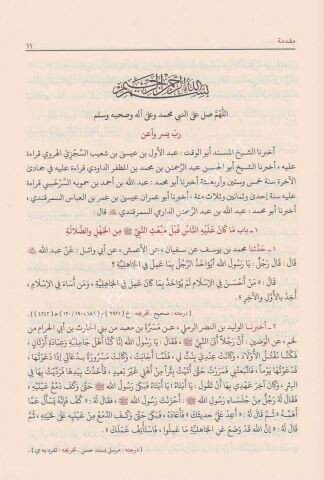 مقدمة
١١
بسم الله الرحمن الرحيم
اللَّهُمَّ صل على النبي محمد وعلى آله وصحبه وسلم
ربّ يسر وأعن
أخبرنا الشيخ المسند أبو الوقت: عبد الأول بن عيسى بن شعيب السجزي الهروي قراءة
عليه، أخبرنا أبو الحسين عبد الرحمن بن محمد بن المظفر الداودي قراءة عليه في جمادى
الآخرة سنة خمس وستين وأربعمئة أخبرنا أبو محمد: عبد الله بن أحمد بن حمويه السرخسي قراءة
عليه سنة إحدى وثمانين وثلاث مئة، أخبرنا أبو عمران عيسى بن عمر بن العباس السمرقندي،
أخبرنا أبو محمد: عبد الله بن عبد الرحمن الدارمي السمرقندي قال:
١ - باب مَا كَانَ عَلَيْهِ النَّاسُ قَبْلَ مَبْعَثِ النَّبِيِّ ﷺ مِنَ الْجَهْلِ وَالضَّلَالَةِ
١ - حَدَّثَنَا محمد بن يوسف، عن سفيان، عن الأعمش، عن أبي وائل، عَنْ عبد الله،
قَالَ: قَالَ رَجُلٌ: يَا رَسُولَ اللَّهِ أَيُؤَاخَذُ الرَّجُلُ بِمَا عَمِلَ فِي الْجَاهِلِيَّةِ؟
قَالَ: « مَنْ أَحْسَنَ فِي الْإِسْلَامِ لَمْ يُؤَاخَذْ بِمَا كَانَ عَمِلَ فِي الْجَاهِلِيَّةِ، وَمَنْ أَسَاءَ فِي الْإِسْلَامِ،
أُخِذَ بِالْأَوَّلِ وَالْآخِرِ ».
[ درجته: صحيح، تخريجه: خ (٦٩٢١)، م (١٢٠)
٢ - أخبرنا الوليد بن النضر الرملي، عن مَسَرَّةَ بن معبد من بني الحارث بن أبي الحرام من
لخم، عن الوَضِينِ: أَنَّ رَجُلًا أَتَى النَّبِيَّ ﷺ فَقَالَ: يَا رَسُولَ اللَّهِ إِنَّا كُنَّا أَهْلَ جَاهِلِيَّةٍ وَعِبَادَةِ أَوْثَانٍ،
فَكُنَّا نَقْتُلُ الْأَوْلَادَ، وَكَانَتْ عِنْدِي بِنْتٌ لِي، فَلَمَّا أَجَابَتْ، وَكَانَتْ مَسْرُورَةً بِدُعَائِي إِذَا دَعَوْتُهَا،
فَدَعَوْتُهَا يَوْمًا، فَاتَّبَعَتْنِي فَمَرَرْتُ حَتَّى أَتَيْتُ بِئْرًا مِنْ أَهْلِي غَيْرَ بَعِيدٍ، فَأَخَذْتُ بِيَدِهَا فَرَدَّيْتُ بِهَا فِي
الْبِئْرِ، وَكَانَ آخِرَ عَهْدِي بِهَا أَنْ تَقُولَ: يَا أَبَتَاهُ يَا أَبَتَاهُ، فَبَكَى رَسُولُ اللَّهِ ﷺ حَتَّى وَكَفَ دَمْعُ عَيْنَيْهِ،
فَقَالَ لَهُ رَجُلٌ مِنْ جُلَسَاءِ رَسُولِ اللَّهِ ﷺ: أَحْزَنْتَ رَسُولَ اللَّهِ ﷺ، فَقَالَ لَهُ: « كُفَّ فَإِنَّهُ يَسْأَلُ عَمَّا
أَهَمَّهُ »، ثُمَّ قَالَ لَهُ: « أَعِدْ عَلَيَّ حَدِيثَكَ » فَأَعَادَهُ، فَبَكَى حَتَّى وَكَفَ الدَّمْعُ مِنْ عَيْنَيْهِ عَلَى لِحْيَتِهِ، ثُمَّ
قَالَ لَهُ: « إِنَّ اللَّهَ قَدْ وَضَعَ عَنِ الْجَاهِلِيَّةِ مَا عَمِلُوا، فَاسْتَأْنِفْ عَمَلَكَ ».
[ درجته: مرسل بسند حسن، تخريجه: تفرد به ي ].